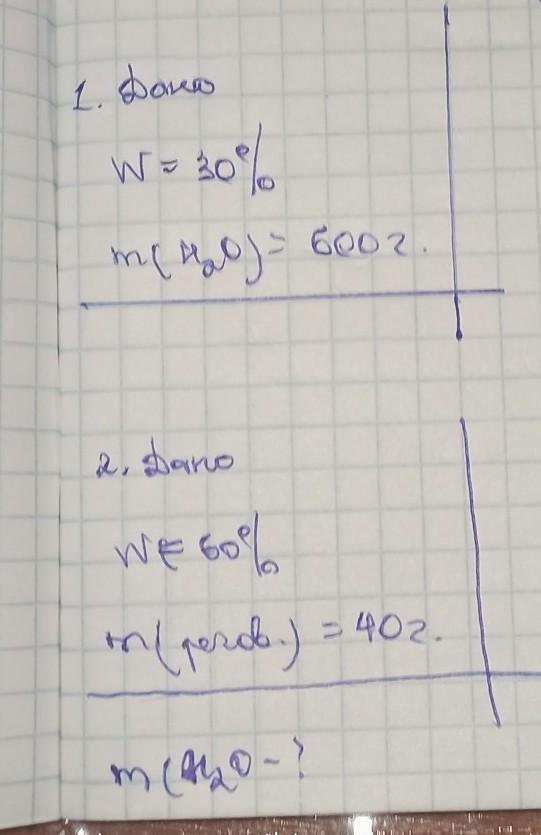 1. Дано
W = 30%
m(H₂O) = 600г.
2. Дано
W = 60%
m(
) = 40г.
m(H₂O - ?